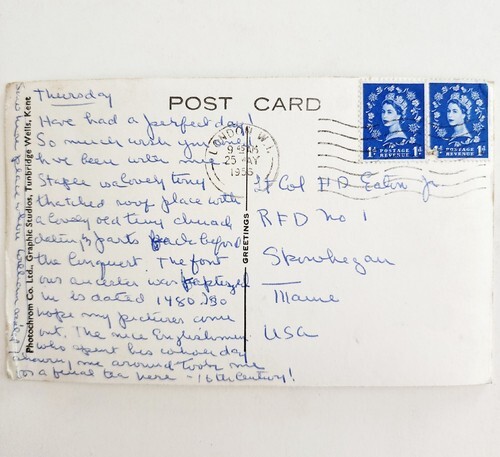 Thursday
POST CARD
Have had a perfect day!
So much wish you could
have been with me.
Staple is lovely tiny
thatched roof place with
a lovely old tiny church
dating parts back before
the Conquest. The font
our ancestor was baptized
in is dated 1480. Do
hope my pictures come
out. The nice Englishman
who spent his whole day
showing me around took me
to a final tea here - 16th Century!
Photochrom Co. Ltd., Graphic Studios, Tunbridge Wells, Kent
GREETINGS
LONDON W.1.
25 MAY
1956
1D POSTAGE REVENUE 1D
1D POSTAGE REVENUE 1D
Lt Col H D Eaton Jr
RFD No 1
Skowhegan
Maine
USA